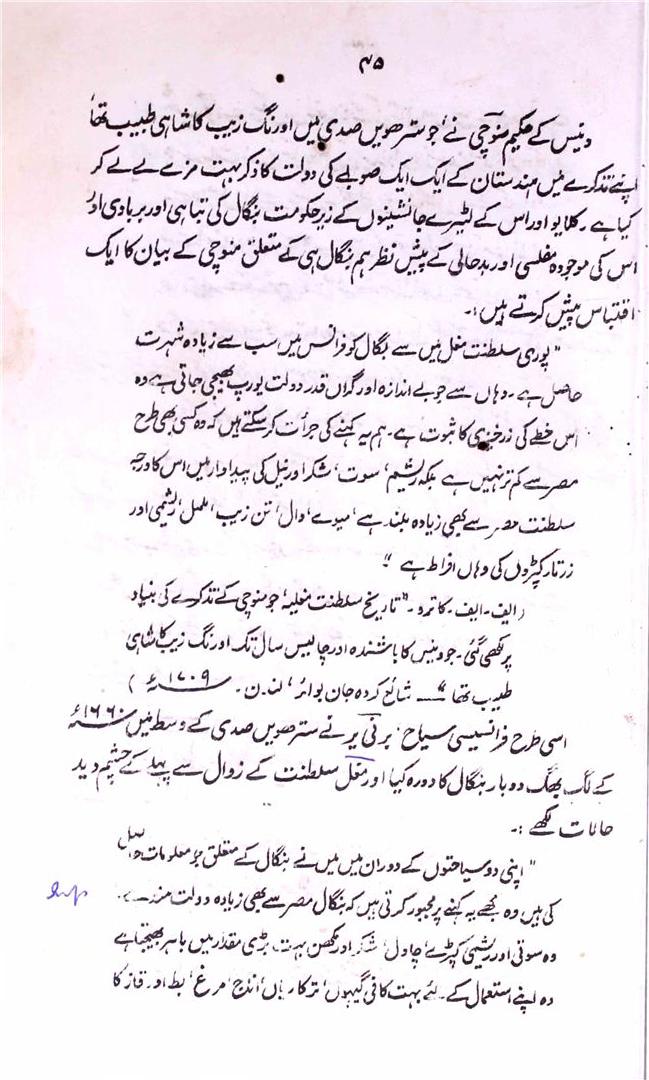 ۴۵
ونیس کے حکیم منوچی نے، جو سترھویں صدی میں اورنگ زیب کا شاہی طبیب تھا
اپنے تذکرے میں ہندستان کے ایک ایک صوبے کی دولت کا ذکر بہت مزے لے لے کر
کیا ہے۔ کلایو اور اس کے لٹیرے جانشینوں کے زیر حکومت بنگال کی تباہی اور بربادی اور
اس کی موجودہ مفلسی اور بدحالی کے پیش نظر ہم بنگال ہی کے متعلق منوچی کے بیان کا ایک
اقتباس پیش کرتے ہیں:۔
"پوری سلطنت مغل میں سے بنگال کو فرانس میں سب سے زیادہ شہرت
حاصل ہے۔ وہاں سے جو بے اندازہ اور گراں قدر دولت یورپ بھیجی جاتی ہے وہ
اس خطے کی زرخیزی کا ثبوت ہے۔ ہم یہ کہنے کی جرأت کر سکتے ہیں کہ وہ کسی بھی طرح
مصر سے کم تر نہیں ہے بلکہ ریشم، سوت، شکر اور نیل کی پیداوار میں اس کا درجہ
سلطنت مصر سے بھی زیادہ بلند ہے، میوے، دال، تن زیب، ململ، ریشمی اور
زرتار کپڑوں کی وہاں افراط ہے"
(ایف۔ ایف۔ کاترو۔ "تاریخ سلطنت مغلیہ، جو منوچی کے تذکرے کی بنیاد
پر لکھی گئی۔ جو وینس کا باشندہ اور چالیس سال تک اورنگ زیب کا شاہی
طبیب تھا" ـــ شائع کردہ جان بوائر، لندن۔ ۱۷۰۹ء)
اسی طرح فرانسیسی سیاح، برنی یر نے سترھویں صدی کے وسط میں ۱۶۶۰ء
کے لگ بھگ دو بار بنگال کا دورہ کیا اور مغل سلطنت کے زوال سے پہلے کے چشم دید
حالات لکھے:۔
"اپنی دو سیاحتوں کے دوران میں میں نے بنگال کے متعلق جو معلومات حاصل
کی ہیں وہ مجھے یہ کہنے پر مجبور کرتی ہیں کہ بنگال مصر سے بھی زیادہ دولت مند ہے۔
وہ سوتی اور ریشمی کپڑے، چاول، شکر اور مکھن بہت بڑی مقدار میں باہر بھیجتا ہے
وہ اپنے استعمال کے لئے بہت کافی گیہوں، ترکاریاں، اناج، مرغ، بط اور قاز کا